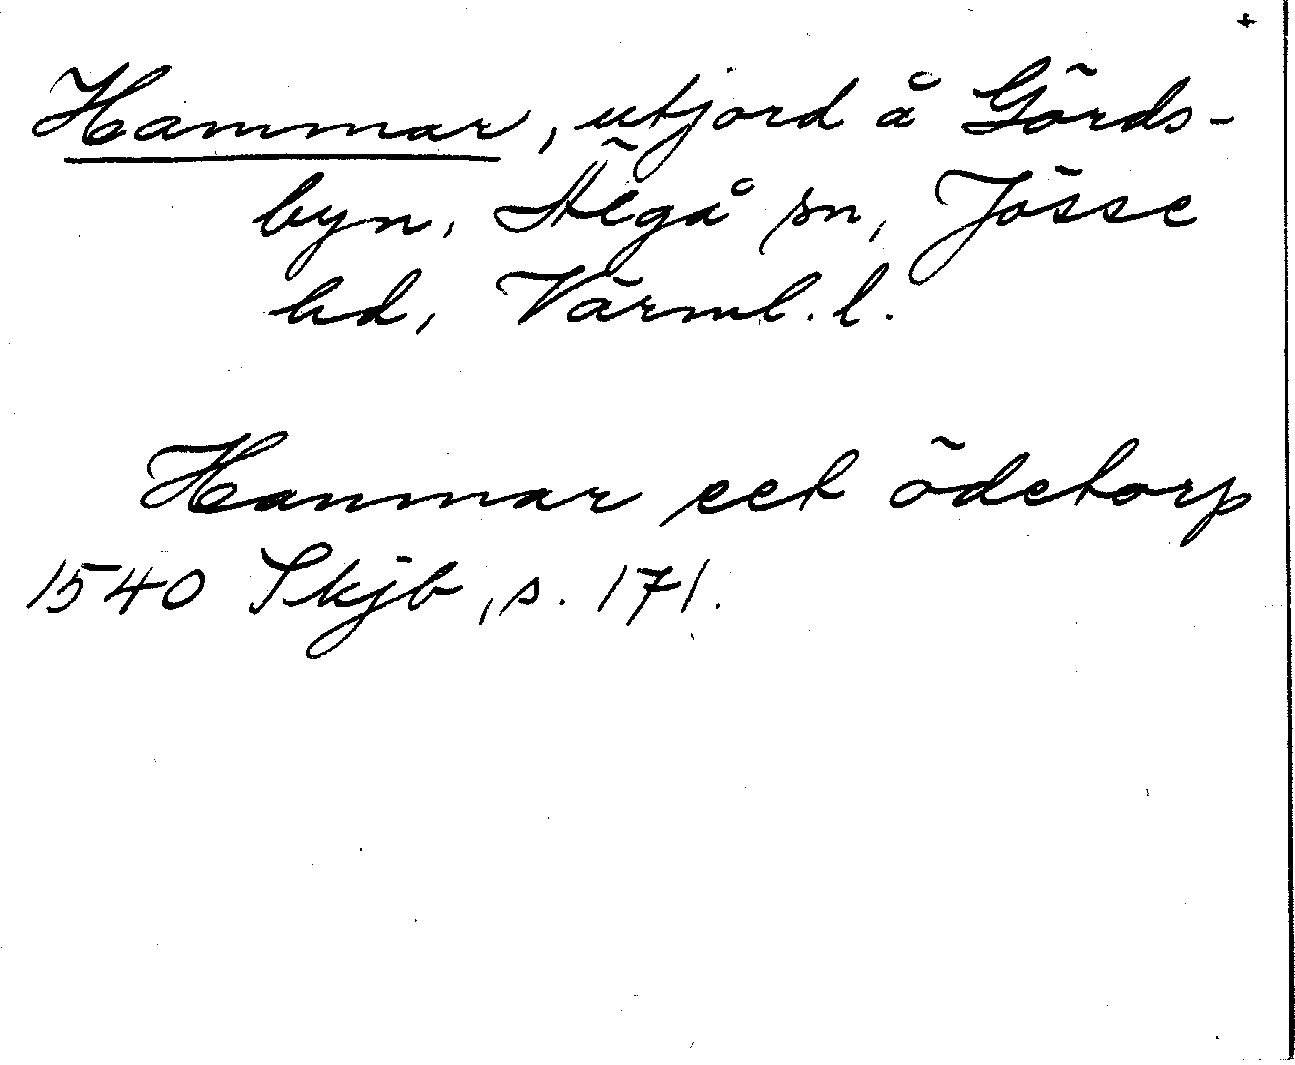 +
Hammar, utjord å Görds-
byn, Älgå sn, Jösse
hd, Värml. l.
Hammar eet ödetorp
1540 Skjb, s. 171.